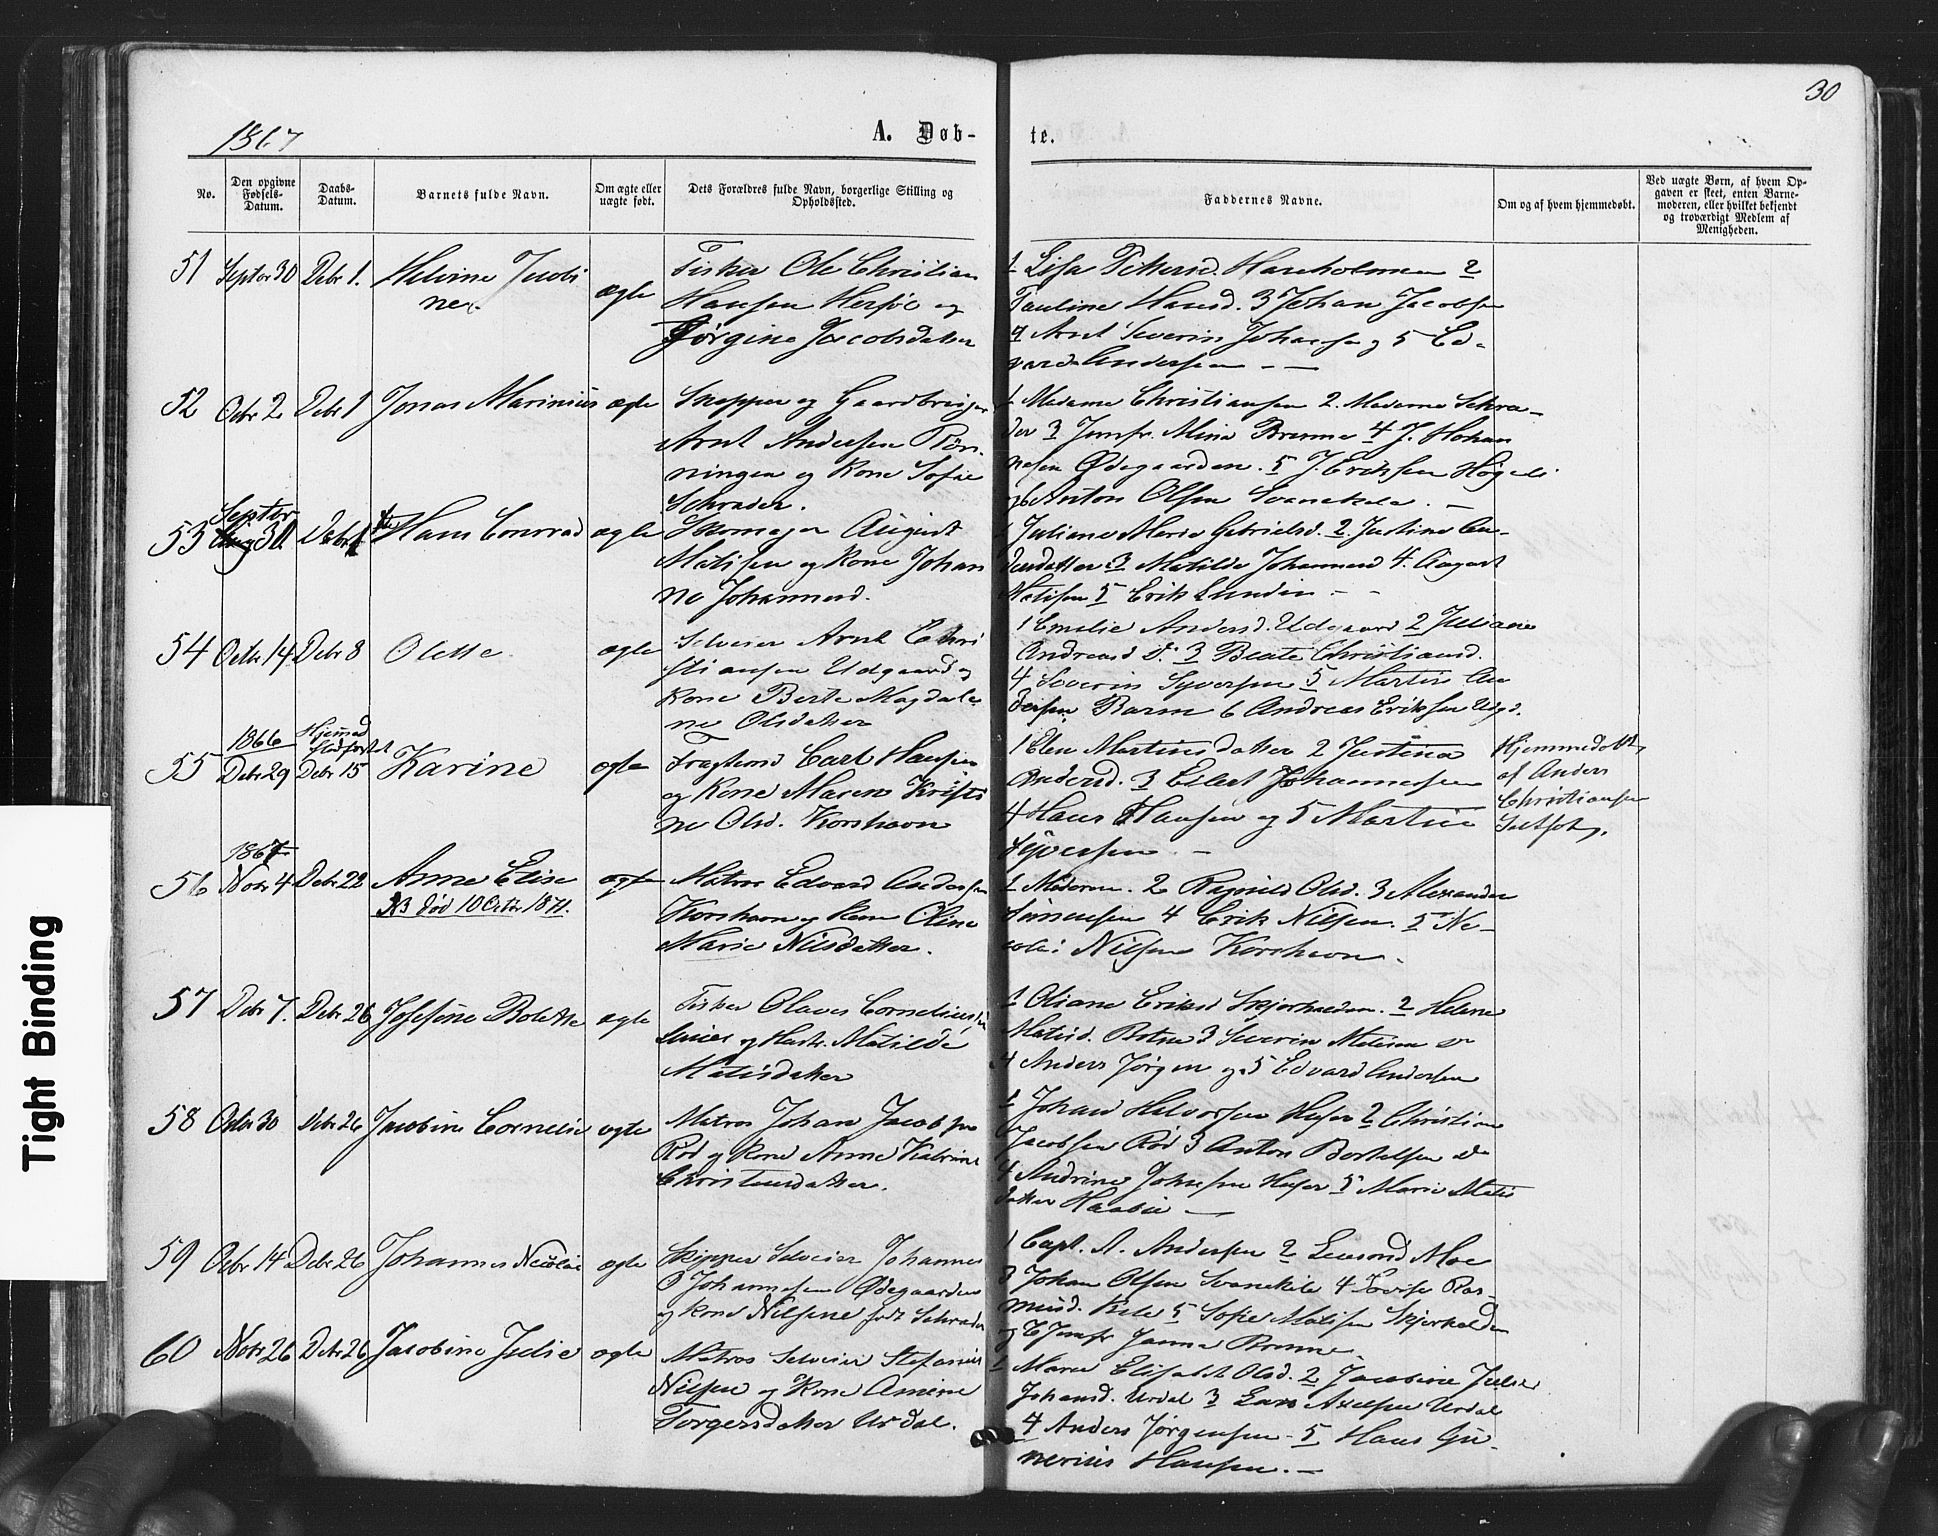 30
1867
A. Døb-
te.
No.
Den opgivne
Fødsels-
Datum.
Daabs-
Datum.
Barnets fulde Navn.
Om ægte eller
uægte født.
Dets Forældres fulde Navn, borgerlige Stilling og
Opholdssted.
Faddernes Navne.
Om og af hvem hjemmedøbt.
Ved uægte Børn, af hvem Op-
gaven er skeet, enten Barne-
moderen, eller hvilket bekjendt
og troværdigt Medlem af
Menigheden.
51 Septbr 30 Debr 1. Helvine Jacobi
ne.
ægte
Fisker Ole Christian
Hansen Herføl og
Jørgine Jacobsdatter
1 Lisa Pettersd. Hareholmen 2
Pauline Hansd. 3 Johan Jacobsen
4 Arnt Severin Johansen og 5 Ed-
vard Andersen - —
52 Octr 2 Debr 1 Jonas Marinius ægte
Skipper og Gaardbruger
Arnt Andersen Røn-
ningen og Kone Sofie
Schrader.
1 Madame Christiansen 2. Madame Schra-
der 3 Jomfr. Mina Brunne 4 J. Johan
nesen Ødegaarden. 5 J. Eriksen Høgeli
og 6 Anton Olsen Svanekile. -
53 Septbr
30 Debr 1 Hans Conrad ægte
Skomager August
Matisen og Kone Johan
ne Johannesd.
1 Juliane Marie Gabrielsd. 2. Justine An-
dersdatter 3 Matilde Johannesd 4. August
Matisen 5 Erik Lundin - -
54 Octbr 14 Debr 8 Olette. ægte
Selveier Arnt Chri
stiansen Udgaard og
Kone Berte Magdale
ne Olsdatter
1 Emelie Andersd. Udgaard 2 Juliane
Andreasd D: 3 Beate Christiansd.
4 Severin Syversen 5 Martin An
dersen Barm 6 Andreas Eriksen Udg.
1866
55 Debr 29
Debr 15 Karine ægte
Fragtmd Carl Hansen
og Kone Maren Kristi
ne Olsd. Korshavn
1 Elen Martinsdatter 2 Justina
Andersd. 3 Eilert Johannesen
4 Hans Hansen og 5 Martin
Syversen. —
Hjemmedøbt
af Anders
Christiansen
1867
56 Nobr 4 Debr 22 Anne Elise
NB død 10 Octbr 1871.
ægte
Matros Edvard Andersen
Korshavn og Kone Oline
Marie Nilsdatter.
1 Moderen. 2 Ragnild Olsd. 3 Alexander
Simensen 4 Erik Nilsen. 5 Ni-
colai Nilsen Korshavn -
57 Debr 7. Debr 26 Josefine Bolette ægte
Fisker Olaves Cornelius
og Hustr. Matilde
Matisdatter
1 Oliane Eriksd Skjærhalden. 2 Helene
Matisd. Botne 3 Severin Matisen
4 Anders Jørgen og 5 Edvard Andersen
58 Octbr 30 Debr 26 Jacobine Cornelie ægte
Matros Johan Jacobsen
Rød og Kone Anne Katrine
Christensdatter.
1 Johan Halvorsen Huser 2 Christian
Jacobsen Rød 3 Anton Bertelsen
4 Andrine Johnsen Huser 5 Marie Matis
datter —
59 Octr 14 Debr 26 Johannes Nicolai ægte
Skipper Selveier Johannes
Johannesen Ødegaarden
og Kone Nilsine født Schrader
1 Capt. A. Andersen 2 Lensmd Moe
3 Johan Olsen Svanekile 4 Lovise Ras-
musd. Kile 5 Sofie Matisen Skjærhalden
og 6 Jomfr Janna Brunne.
60 Nobr 26 Debr 26 Jacobine Julie ægte
Matros Selveier Stefanius
Nilsen og Kone Amine
Torgersdatter Urdal.
1 Maren Elisabet Olsd. 2 Jacobine Julie
Johansd. Urdal 3 Lars Axelsen Urdal
4 Anders Jørgensen - 5 Hans Gu-
nerius Hansen. —
Tight Binding